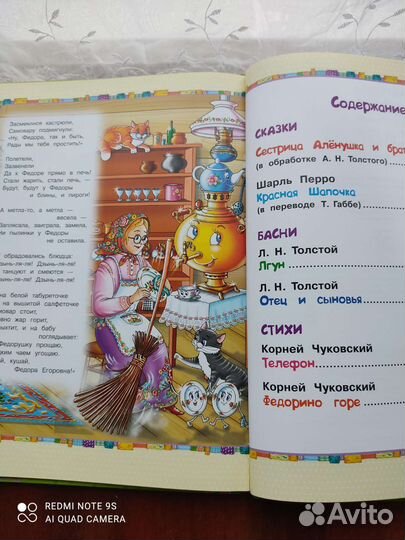 Засмеялися кастрюли,
Самовару подмигнули:
«Ну, Федора, так и быть,
Рады мы тебя простить!»
Полетели,
Зазвенели
Да к Федоре прямо в печь!
Стали жарить, стали печь, —
Будут, будут у Федоры
и блины, и пироги!
А метла-то, а метла —
весела —
Заплясала, заиграла, замела,
Ни пылинки у Федоры
не оставила.
обрадовались блюдца:
нь-ля-ля! Дзынь-ля-ля!
танцуют и смеются —
нь-ля-ля! Дзынь-ля-ля!
на белой табуреточке
на вышитой салфеточке
мовар стоит,
вно жар горит,
ыхтит, и на бабу
поглядывает:
Федорушку прощаю,
ким чаем угощаю.
й, кушай,
Федора Егоровна!»
Содержание
СКАЗКИ
Сестрица Алёнушка и брат
(в обработке А. Н. Толстого)
Шарль Перро
Красная Шапочка
(в переводе Т. Габбе)
БАСНИ
Л. Н. Толстой
Лгун
Л. Н. Толстой
Отец и сыновья
СТИХИ
Корней Чуковский
Телефон
Корней Чуковский
Федорино горе
REDMI NOTE 9S
AI QUAD CAMERA
Avito